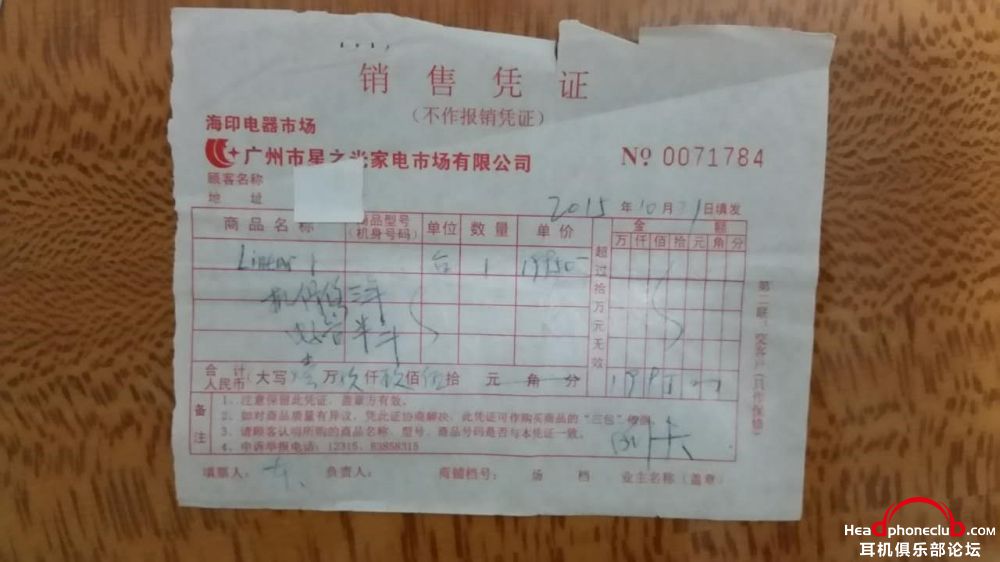 销售凭证
(不作报销凭证)
海印电器市场
广州市星之光家电市场有限公司
Nº 0071784
顾客名称
地 址
2015 年 10 月 日填发
商品名称 商品型号(机身号码) 单位 数量 单价 超过拾万元无效 金额
万 仟 佰 拾 元 角 分
台 1 19950-
机保修三年
半年
合计人民币 大写 壹 万 玖 仟 玖 佰 伍 拾 元 角 分
备注
1、注意保留此凭证,盖章方有效。
2、如对商品质量有异议,凭此证协商解决,此凭证可作购买商品的“三包”依据。
3、请顾客认明所购的商品名称、型号、商品号码是否与本凭证一致。
4、申诉举报电话:12315、83858315
刷卡
填票人: 负责人: 商铺档号: 场 档 业主名称(盖章)
第二联:交客户(只作保修)
Headphoneclub.com
耳机俱乐部论坛